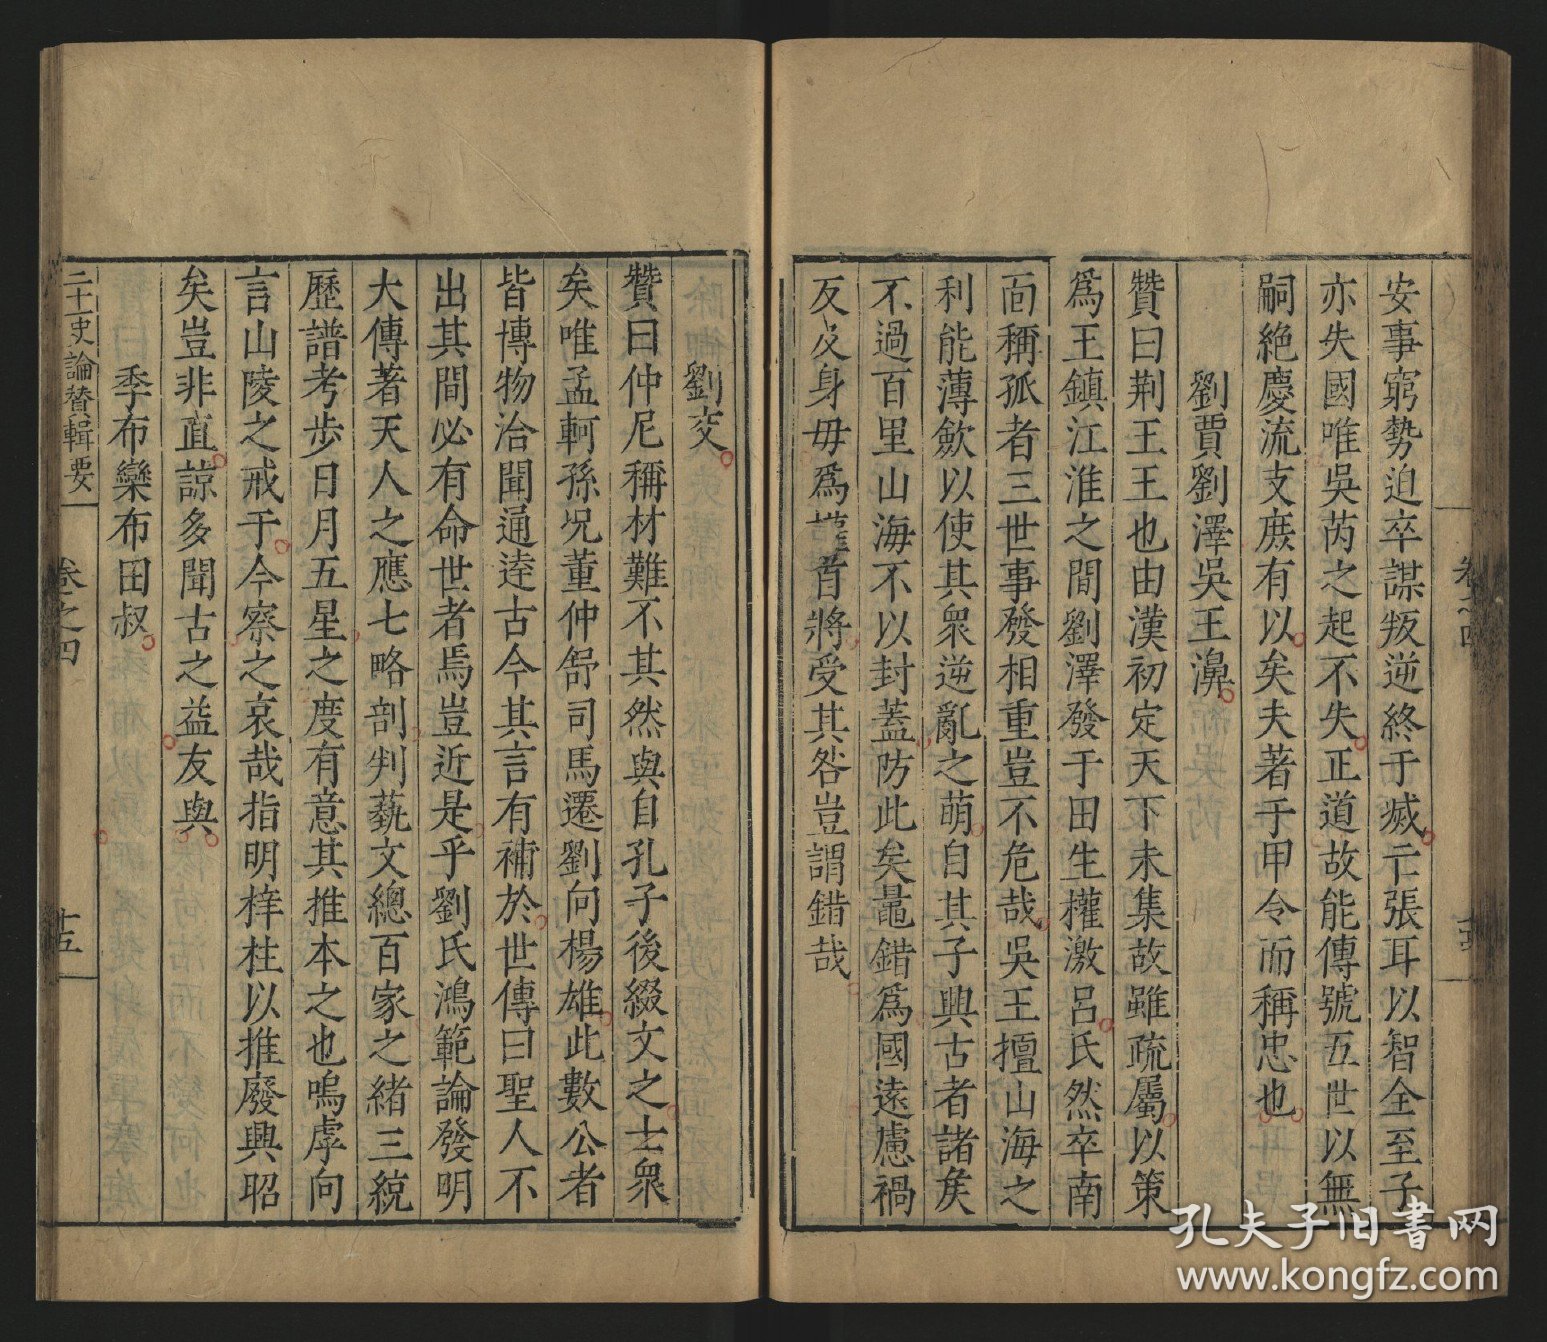 安事窮勢迫卒謀叛逆終于滅亡張耳以智全至子
亦失國唯吳芮之起不失正道故能傳號五世以無
嗣絶慶流支庶有以矣夫著于甲令而稱忠也
劉賈劉澤吳王濞
贊曰荆王王也由漢初定天下未集故雖疏屬以策
爲王鎮江淮之間劉澤發于田生權激呂氏然卒南
面稱孤者三世事發相重豈不危哉吳王擅山海之
利能薄斂以使其衆逆亂之萌自其子興古者諸矦
不過百里山海不以封蓋防此矣鼂錯爲國遠慮禍
反及身毋爲權首將受其咎豈謂錯哉
劉交
贊曰仲尼稱材難不其然與自孔子後綴文之士衆
矣唯孟軻孫况董仲舒司馬遷劉向楊雄此數公者
皆博物洽聞通達古今其言有補於世傳曰聖人不
出其間必有命世者焉豈近是乎劉氏鴻範論發明
大傳著天人之應七略剖判藝文總百家之緒三統
歷譜考步日月五星之度有意其推本之也嗚虖向
言山陵之戒于今察之哀哉指明梓柱以推廢興昭
矣豈非直諒多聞古之益友與
季布欒布田叔
二十一史論贊輯要 卷之四 十五
孔夫子旧書网
www.kongfz.com